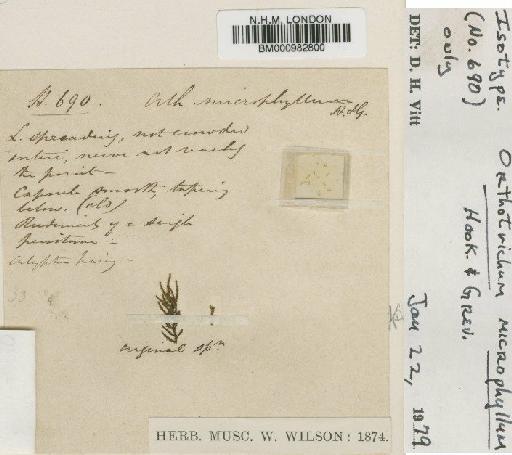 N.H.M. LONDON
BM000982800
H. 690. Orth microphyllum
H. & G.
L. spreading, not crowded
entire, nerve not reaching
the point –
Capsule smooth, tapering
below. (old)
Rudiments of a single
peristome –
Calyptra hairy –
original spn
HERB. MUSC. W. WILSON: 1874.
Isotype.
(No. 690)
only
Orthotrichum microphyllum
Hook. & Grev.
DET: D. H. Vitt
Jan 22, 1979